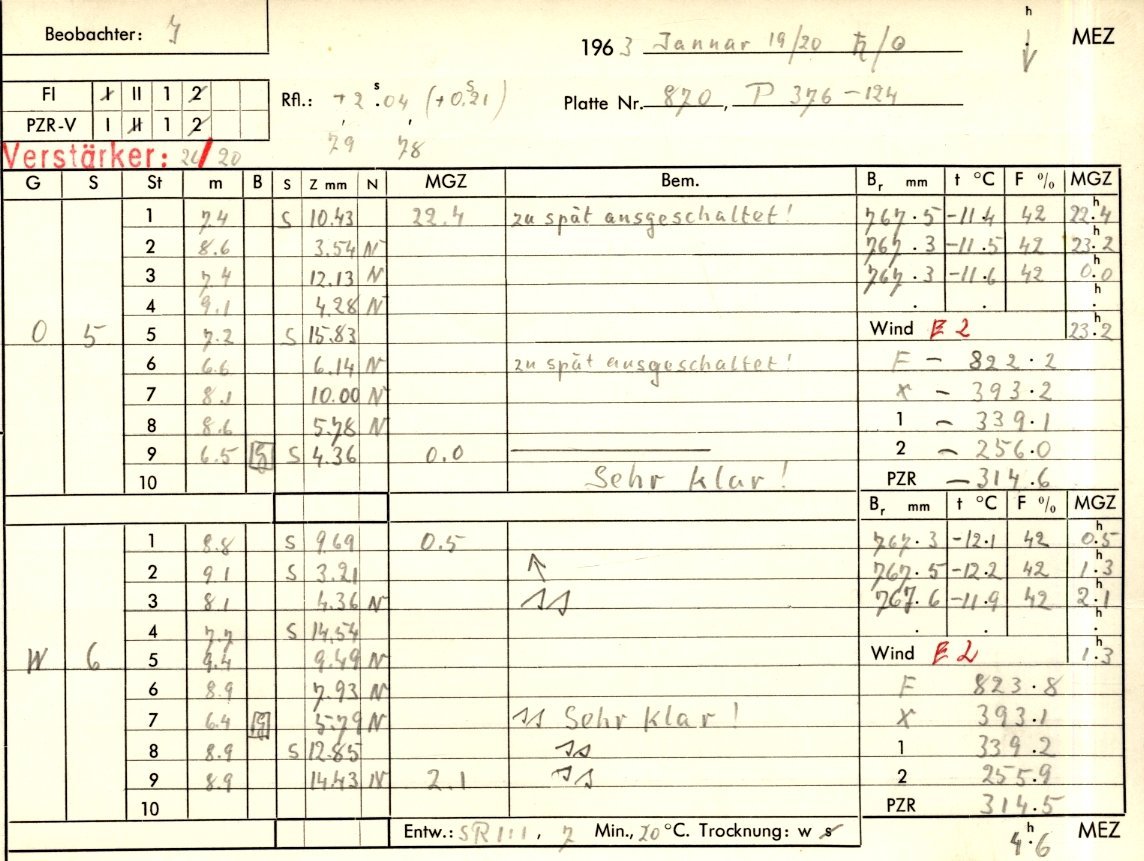 Beobachter: J
1963 Januar 19/20 ♄/☉
h
MEZ
FI I II 1 2
PZR-V I II 1 2
Rfl.: +2ˢ.04 (+0ˢ.21)
79 78
Platte Nr. 870, P 376-124
Verstärker: 20/20
G S St m B S Z mm N MGZ Bem. Br mm t °C F % MGZ
1 7.4 S 10.43 22.4 zu spät ausgeschaltet! 767.5 -11.4 42 22.4
2 8.6 3.54 N 767.3 -11.5 42 23.2
3 7.4 12.13 N 767.3 -11.6 42 0.0
4 9.1 4.28 N
O 5 5 7.2 S 15.83 Wind E 2 23.2
6 6.6 6.14 N zu spät ausgeschaltet! F - 822.2
7 8.1 10.00 N x - 393.2
8 8.6 5.78 N 1 - 339.1
9 6.5 S 4.36 0.0 2 - 256.0
10 Sehr klar! PZR - 314.6
Br mm t °C F % MGZ
1 8.8 S 9.69 0.5 767.3 -12.1 42 0.5
2 9.1 S 3.21 767.5 -12.2 42 1.3
3 8.1 4.36 N ss 767.6 -11.9 42 2.1
4 7.7 S 14.54
W 6 5 9.4 9.49 N Wind E 2 1.3
6 8.9 7.93 N F 823.8
7 6.4 5.79 N ss Sehr klar! X 393.1
8 8.9 S 12.85 ss 1 339.2
9 8.9 14.43 N 2.1 ss 2 255.9
10 PZR 314.5
Entw.: SR III, 7 Min., 20 °C. Trocknung: w s
4ʰ.6 MEZ